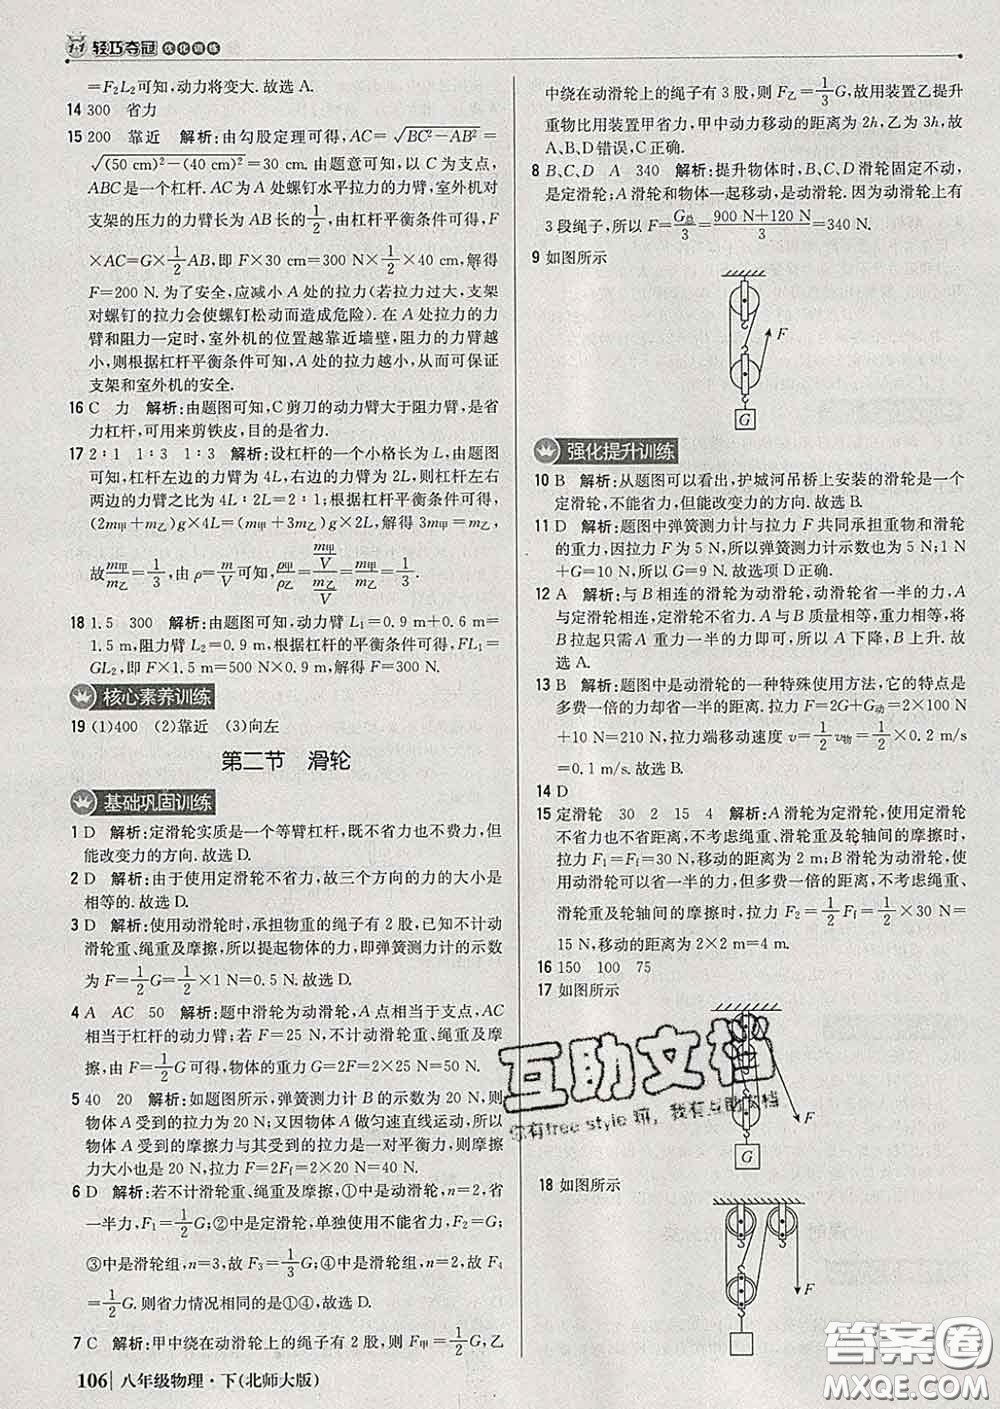 1+1 轻巧夺冠 优化训练
=F₂L₂可知,动力将变大.故选 A.
14 300 省力
15 200 靠近 解析:由勾股定理可得,AC=√(BC²-AB²)=
√((50 cm)²-(40 cm)²)=30 cm.由题意可知,以 C 为支点,
ABC是一个杠杆.AC为 A 处螺钉水平拉力的力臂,室外机对
支架的压力的力臂长为 AB 长的1/2,由杠杆平衡条件可得,F
×AC=G×1/2AB,即 F×30 cm=300 N×1/2×40 cm,解得
F=200 N.为了安全,应减小 A 处的拉力(若拉力过大,支架
对螺钉的拉力会使螺钉松动而造成危险).在 A 处拉力的力
臂和阻力一定时,室外机的位置越靠近墙壁,阻力的力臂越
小,则根据杠杆平衡条件可知,A 处的拉力越小,从而可保证
支架和室外机的安全.
16 C 力 解析:由题图可知,C剪刀的动力臂大于阻力臂,是省
力杠杆,可用来剪铁皮,目的是省力.
17 2∶1 1∶3 1∶3 解析:设杠杆的一个小格长为 L,由题图
可知,杠杆左边的力臂为 4L,右边的力臂为 2L,则杠杆左右
两边的力臂之比为 4L∶2L=2∶1;根据杠杆平衡条件可得,
(2m甲+m乙)g×4L=(m甲+3m乙)g×2L,解得 3m甲=m乙,
故m甲/m乙=1/3,由 ρ=m/V可知,ρ甲/ρ乙=(m甲/V)/(m乙/V)=1/3.
18 1.5 300 解析:由题图可知,动力臂 L₁=0.9 m+0.6 m=
1.5 m,阻力臂 L₂=0.9 m,根据杠杆的平衡条件可得,FL₁=
GL₂,即 F×1.5 m=500 N×0.9 m,解得 F=300 N.
核心素养训练
19 (1)400 (2)靠近 (3)向左
第二节 滑轮
基础巩固训练
1 D 解析:定滑轮实质是一个等臂杠杆,既不省力也不费力,但
能改变力的方向.故选 D.
2 D 解析:由于使用定滑轮不省力,故三个方向的力的大小是
相等的.故选 D.
3 D 解析:使用动滑轮时,承担物重的绳子有 2 股,已知不计动
滑轮重、绳重及摩擦,所以提起物体的力,即弹簧测力计的示数
为 F=1/2G=1/2×1 N=0.5 N.故选 D.
4 A AC 50 解析:题中滑轮为动滑轮,A 点相当于支点,AC
相当于杠杆的动力臂;若 F=25 N,不计动滑轮重、绳重及摩
擦,由 F=1/2G 可得,物体的重力 G=2F=2×25 N=50 N.
5 40 20 解析:如题图所示,弹簧测力计 B 的示数为 20 N,则
物体 A 受到的拉力为 20 N;又因物体 A 做匀速直线运动,所以
物体 A 受到的摩擦力与其受到的拉力是一对平衡力,则摩擦
力大小也是 20 N,拉力 F=2Ff=2×20 N=40 N.
6 D 解析:若不计滑轮重、绳重及摩擦,①中是动滑轮,n=2,省
一半力,F₁=1/2G;②中是定滑轮,单独使用不能省力,F₂=G;
③中是滑轮组,n=3,故 F₃=1/3G;④中是滑轮组,n=2,故 F₄
=1/2G.则省力情况相同的是①④,故选 D.
7 C 解析:甲中绕在动滑轮上的绳子有 2 股,则 F甲=1/2G,乙
106 八年级物理·下(北师大版)
中绕在动滑轮上的绳子有 3 股,则 F乙=1/3G,故用装置乙提升
重物比用装置甲省力,甲中动力移动的距离为 2h,乙为 3h,故
A、B、D错误,C 正确.
8 B、C、D A 340 解析:提升物体时,B、C、D 滑轮固定不动,
是定滑轮;A 滑轮和物体一起移动,是动滑轮.因为动滑轮上有
3 段绳子,所以 F=G总/3=(900 N+120 N)/3=340 N.
9 如图所示
F
G
强化提升训练
10 B 解析:从题图可以看出,护城河吊桥上安装的滑轮是一个
定滑轮,不能省力,但能改变力的方向.故选 B.
11 D 解析:题图中弹簧测力计与拉力 F 共同承担重物和滑轮
的重力,因拉力 F 为 5 N,所以弹簧测力计示数也为 5 N;1 N
+G=10 N,所以 G=9 N.故选项 D 正确.
12 A 解析:与 B 相连的滑轮为动滑轮,动滑轮省一半的力,A
与定滑轮相连,定滑轮不省力.A 与 B 质量相等,重力相等,将
B 拉起只需 A 重力一半的力即可,所以 A 下降,B 上升.故
选 A.
13 B 解析:题图中是动滑轮的一种特殊使用方法,它的特点是
多费一倍的力却省一半的距离.拉力 F=2G+G动=2×100 N
+10 N=210 N,拉力端移动速度 v=1/2v物=1/2×0.2 m/s
=0.1 m/s.故选 B.
14 D
15 定滑轮 30 2 15 4 解析:A 滑轮为定滑轮,使用定滑轮
不省力也不省距离,不考虑绳重、滑轮重及轮轴间的摩擦时,
拉力 F₁=Ff=30 N,移动的距离为 2 m;B 滑轮为动滑轮,使
用动滑轮可以省一半的力,但多费一倍的距离,不考虑绳重、
滑轮重及轮轴间的摩擦时,拉力 F₂=1/2Ff=1/2×30 N=
15 N,移动的距离为 2×2 m=4 m.
16 150 100 75
17 如图所示
F
G
18 如图所示
F
互助文档
你有free style 吗, 我有互助文档
答案圈
MXQE.COM